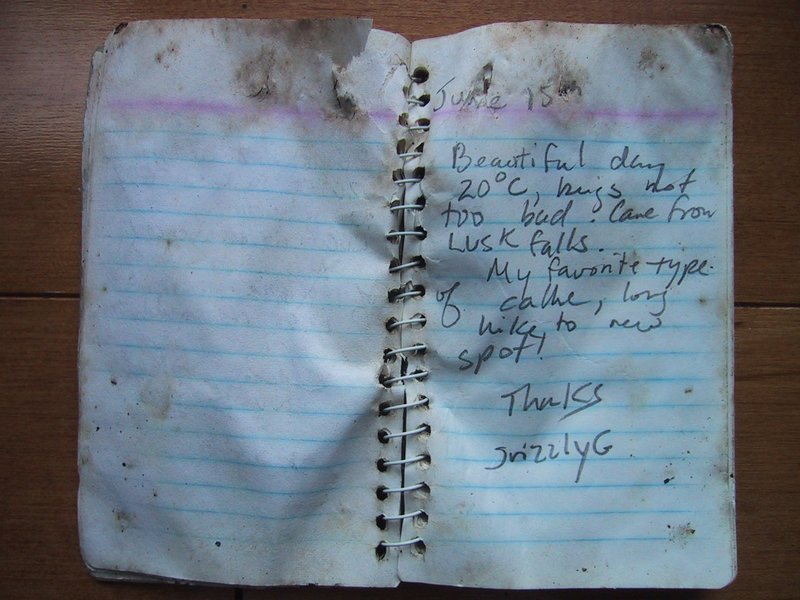 June 15th
Beautiful day
20°C, bugs not
too bad. Came from
LUSK falls.
My favorite type
of cache, long
hike to new
spot!
Thanks
JrizzlyG